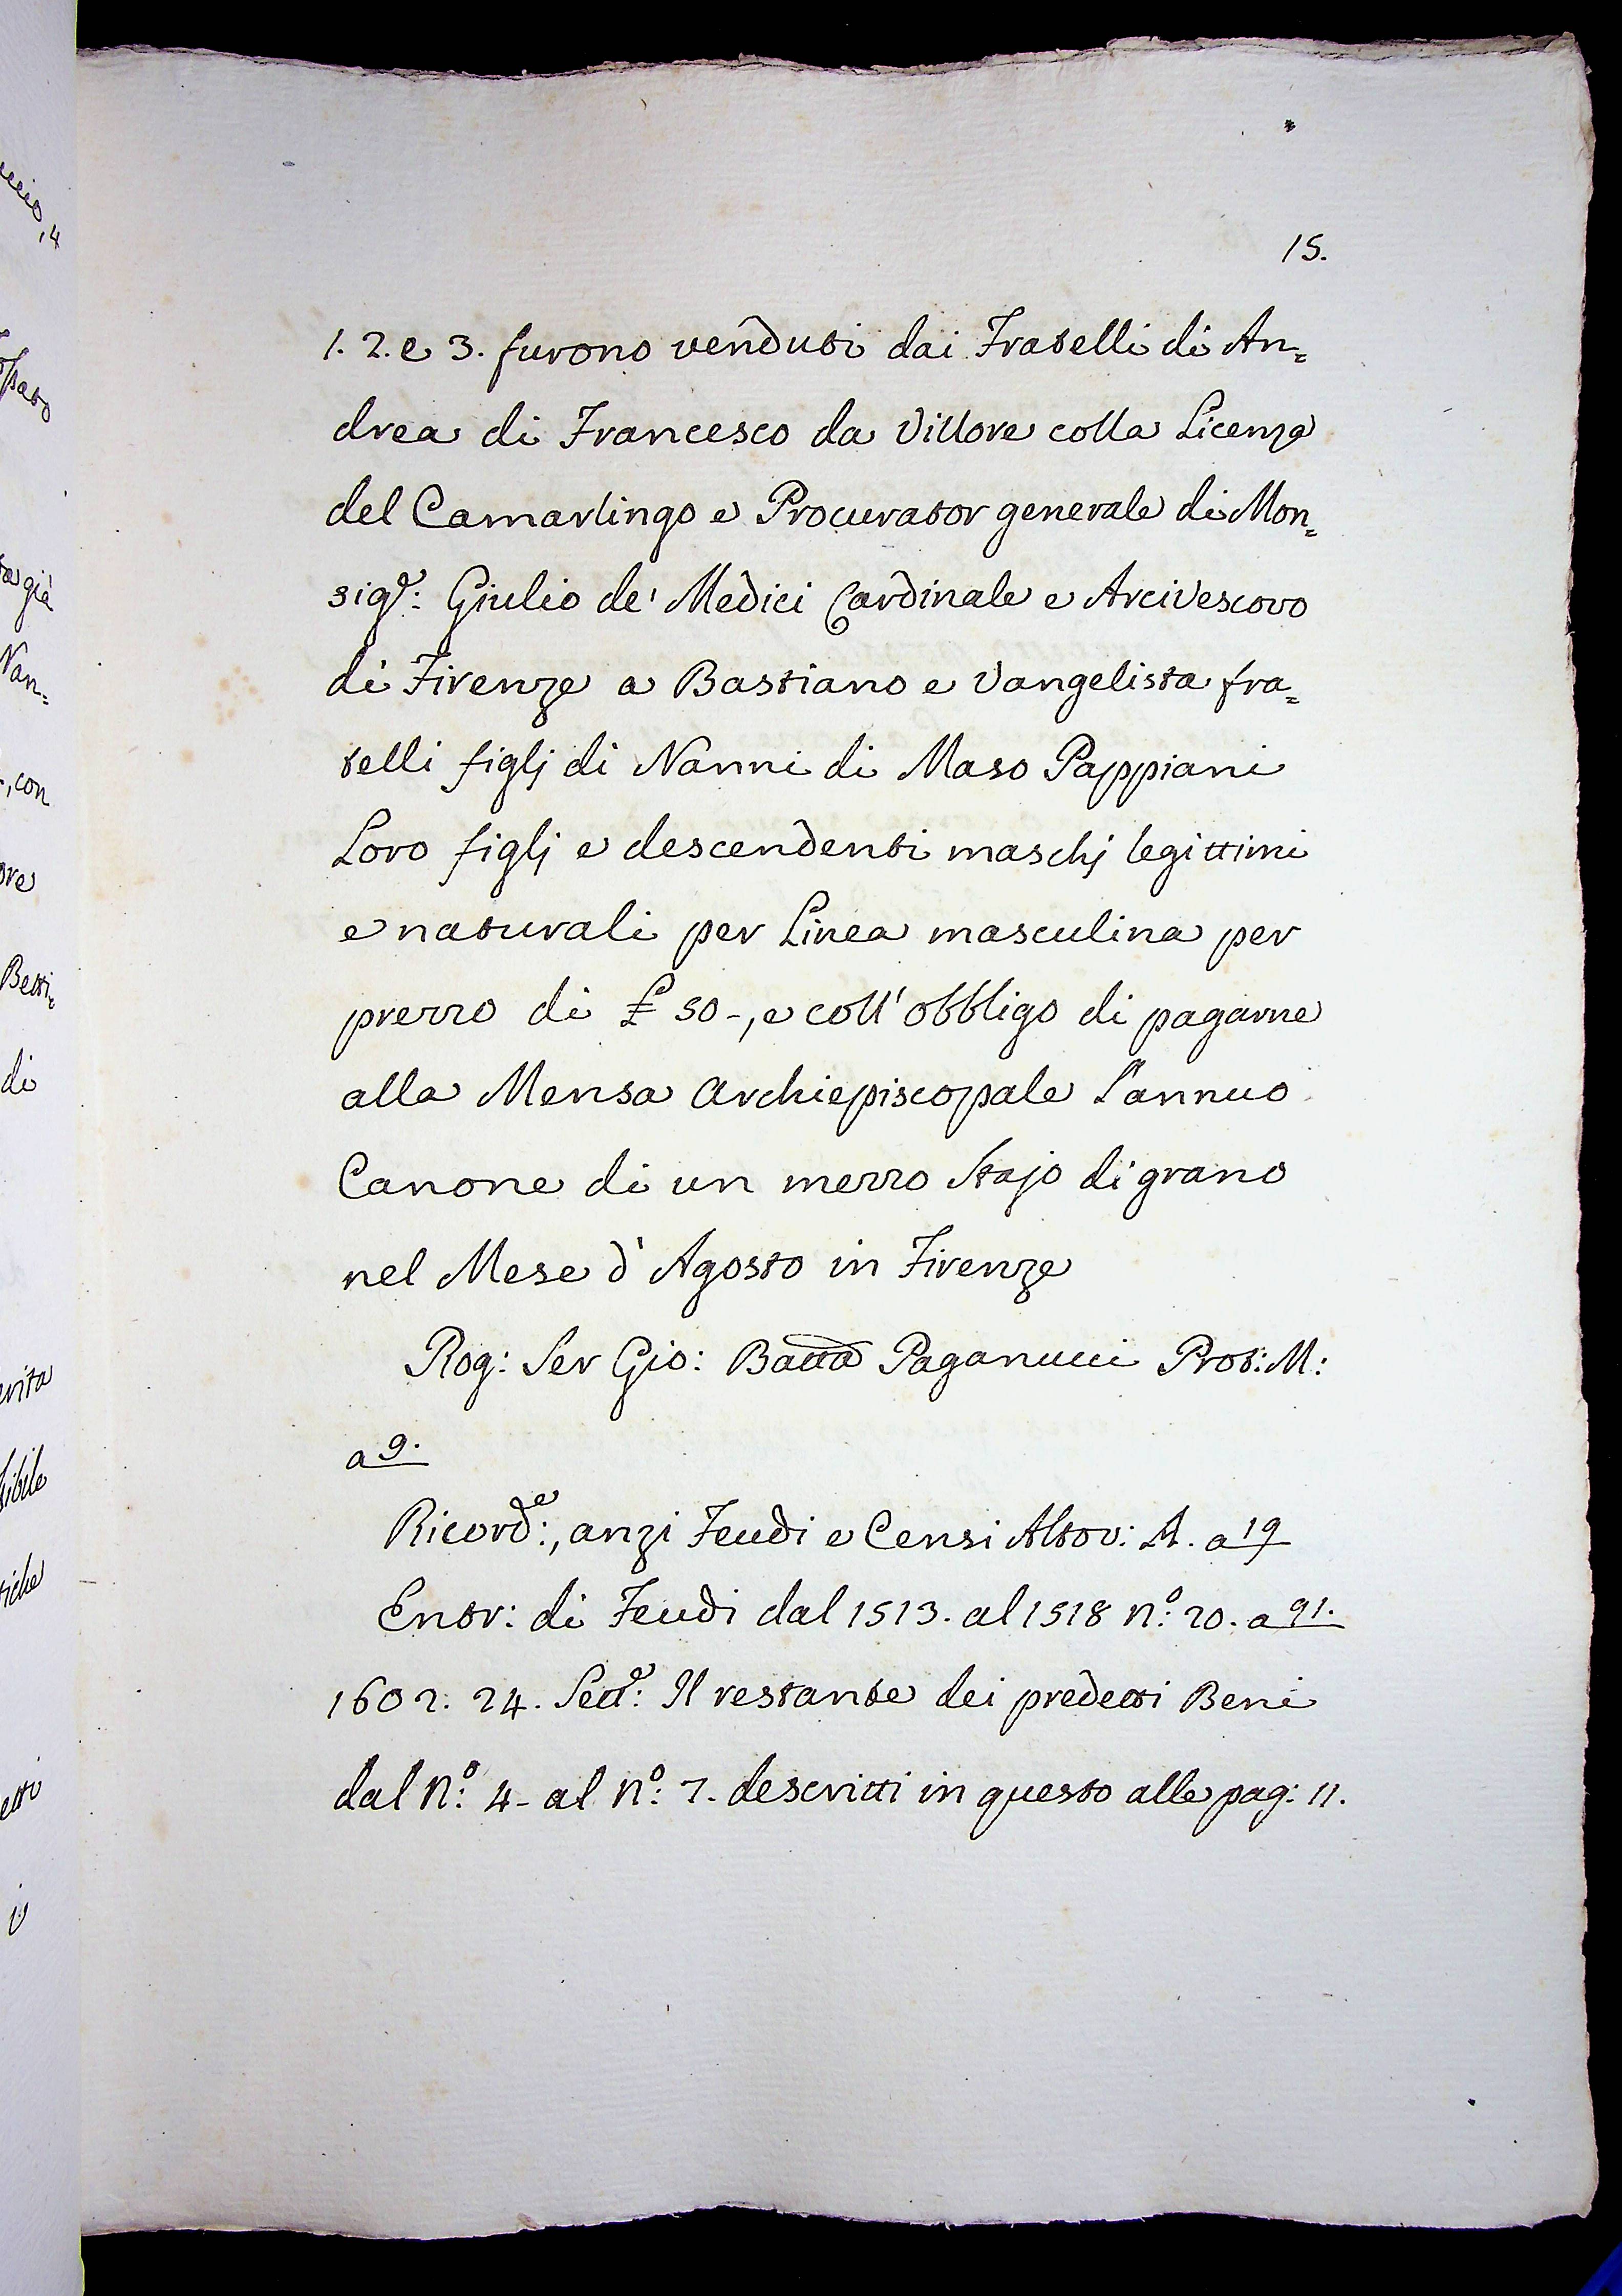 15.
1. 2. e 3. furono venduti dai Fratelli di An=
drea di Francesco da Villore colla Licenza
del Camarlingo e Procurator generale di Mon=
sig.e: Giulio de' Medici Cardinale e Arcivescovo
di Firenze a Bastiano e Vangelista fra=
telli figlj di Nanni di Maso Pappiani
Loro figlj e descendenti maschj legittimi
e naturali per Linea masculina per
prezzo di £ 50-, e coll' obbligo di pagarne
alla Mensa Archiepiscopale l'annuo
Canone di un mezzo Stajo di grano
nel Mese d' Agosto in Firenze
Rog: Ser Gio: Batta Paganucci Prot: M:
a 9.
Ricord.e:, anzi Feudi e Censi Altov: A. a 19
Entr: di Feudi dal 1513. al 1518 n.o: 20. a 91.
1602. 24. Sett.e: Il restante dei predetti Beni
dal N.o: 4- al N.o: 7. descritti in questo alle pag: 11.
già
Nan=
, con
di